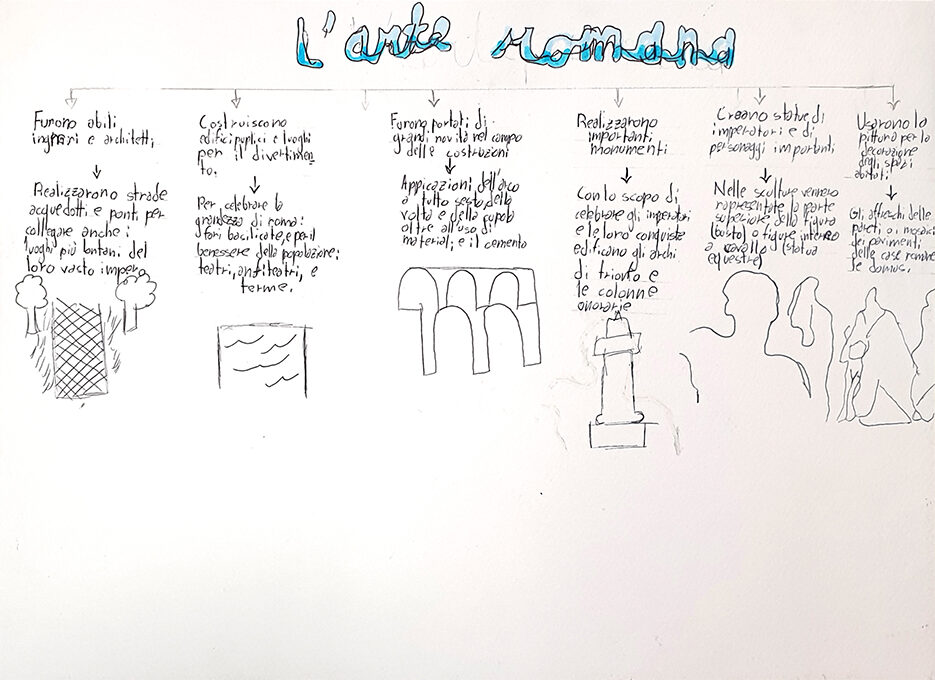 L'arte romana
Furono abili
ingnieri e architetti
Realizzarono strade
acquedotti e ponti per
collegare anche i
luoghi più lontani del
loro vasto impero
Costruiscono
edifici puplici e luoghi
per il divertimen
to.
Per celebrare la
grandezza di roma:
fori basilicate, e per il
benessere della popolazione:
teatri, anfiteatri, e
terme.
Furono portati di
grandi novità nel campo
delle costruzioni
Appicazioni dell'arco
a tutto sesto, della
volta e della cupola
oltre all'uso di
materiali e il cemento
Realizzarono
importanti
monumenti
Con lo scopo di
celebrare gli imperatori
e le loro conquiste
edificano gli archi
di trionfo e
le colonne
onorarie
Creano statue di
imperatori e di
personaggi importanti
Nelle sculture vennero
rappresentate la parte
superiore della figura
(busto) o figure intere o
a cavallo (statua
equestre)
Usarono la
pittura per la
decorazione
degli spazi
abitati
Gli affreschi delle
pareti o i mosaici
dei pavimenti
delle case romane
le domus.